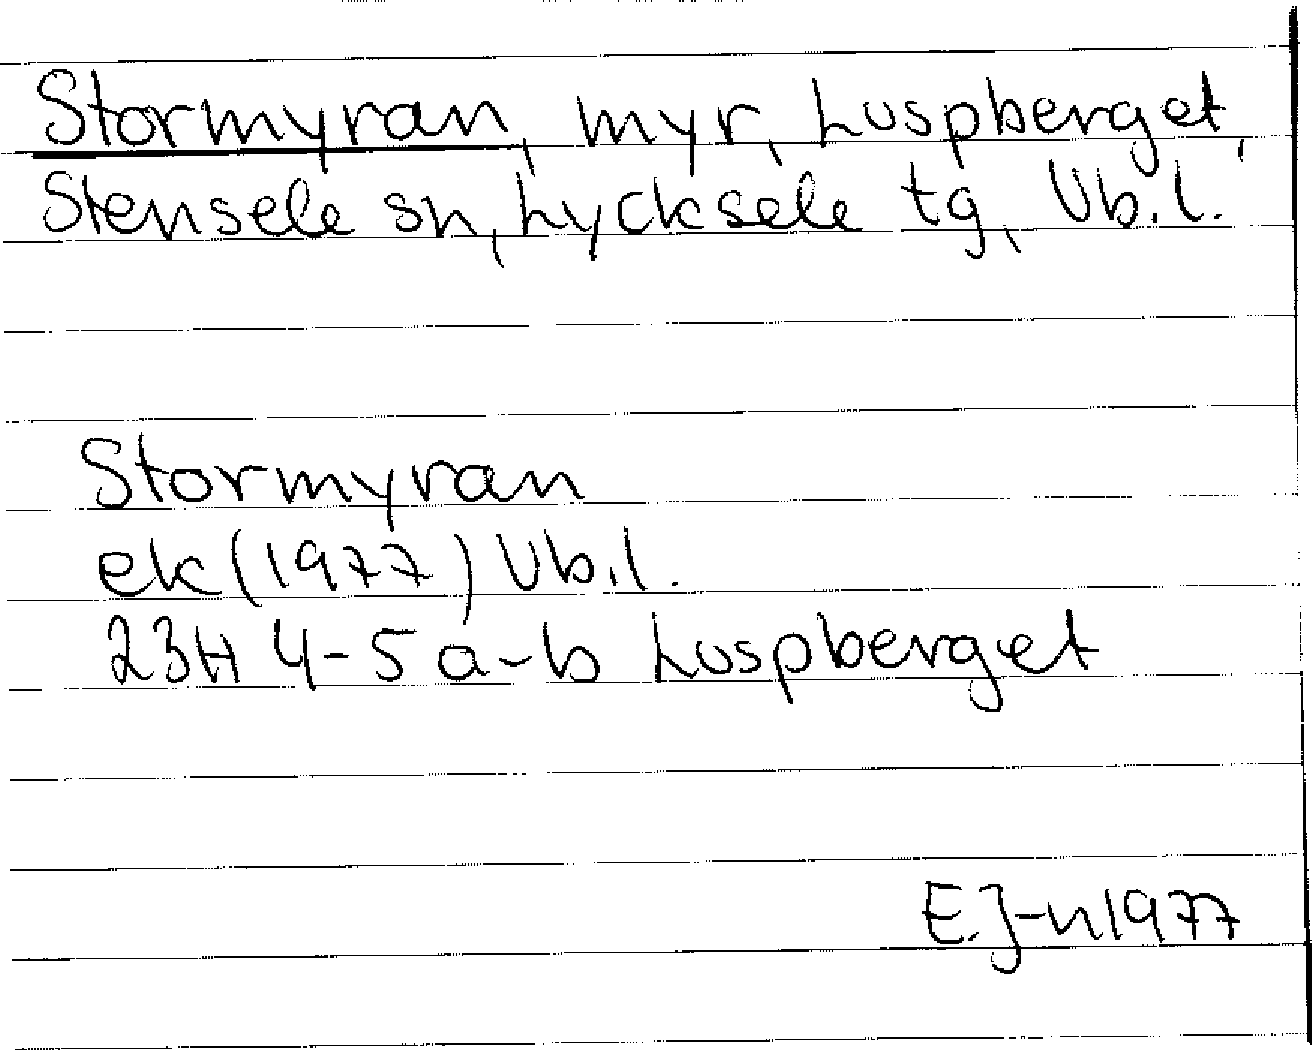 Stormyran, myr, Luspberget,
Stensele sn, Lycksele tg, Vb.l.
Stormyran
ek (1977) Vb.l.
23H 4-5 a-b Luspberget
E.J-n 1977